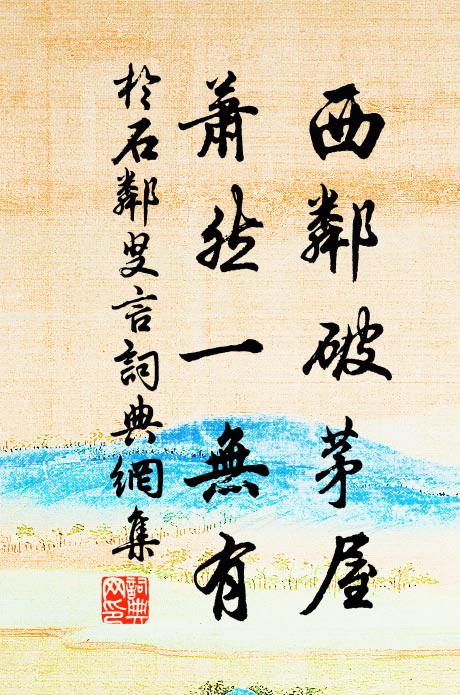 西鄰破茅屋
蕭然一無有
於石鄰叟言詞典網集
詞典網印